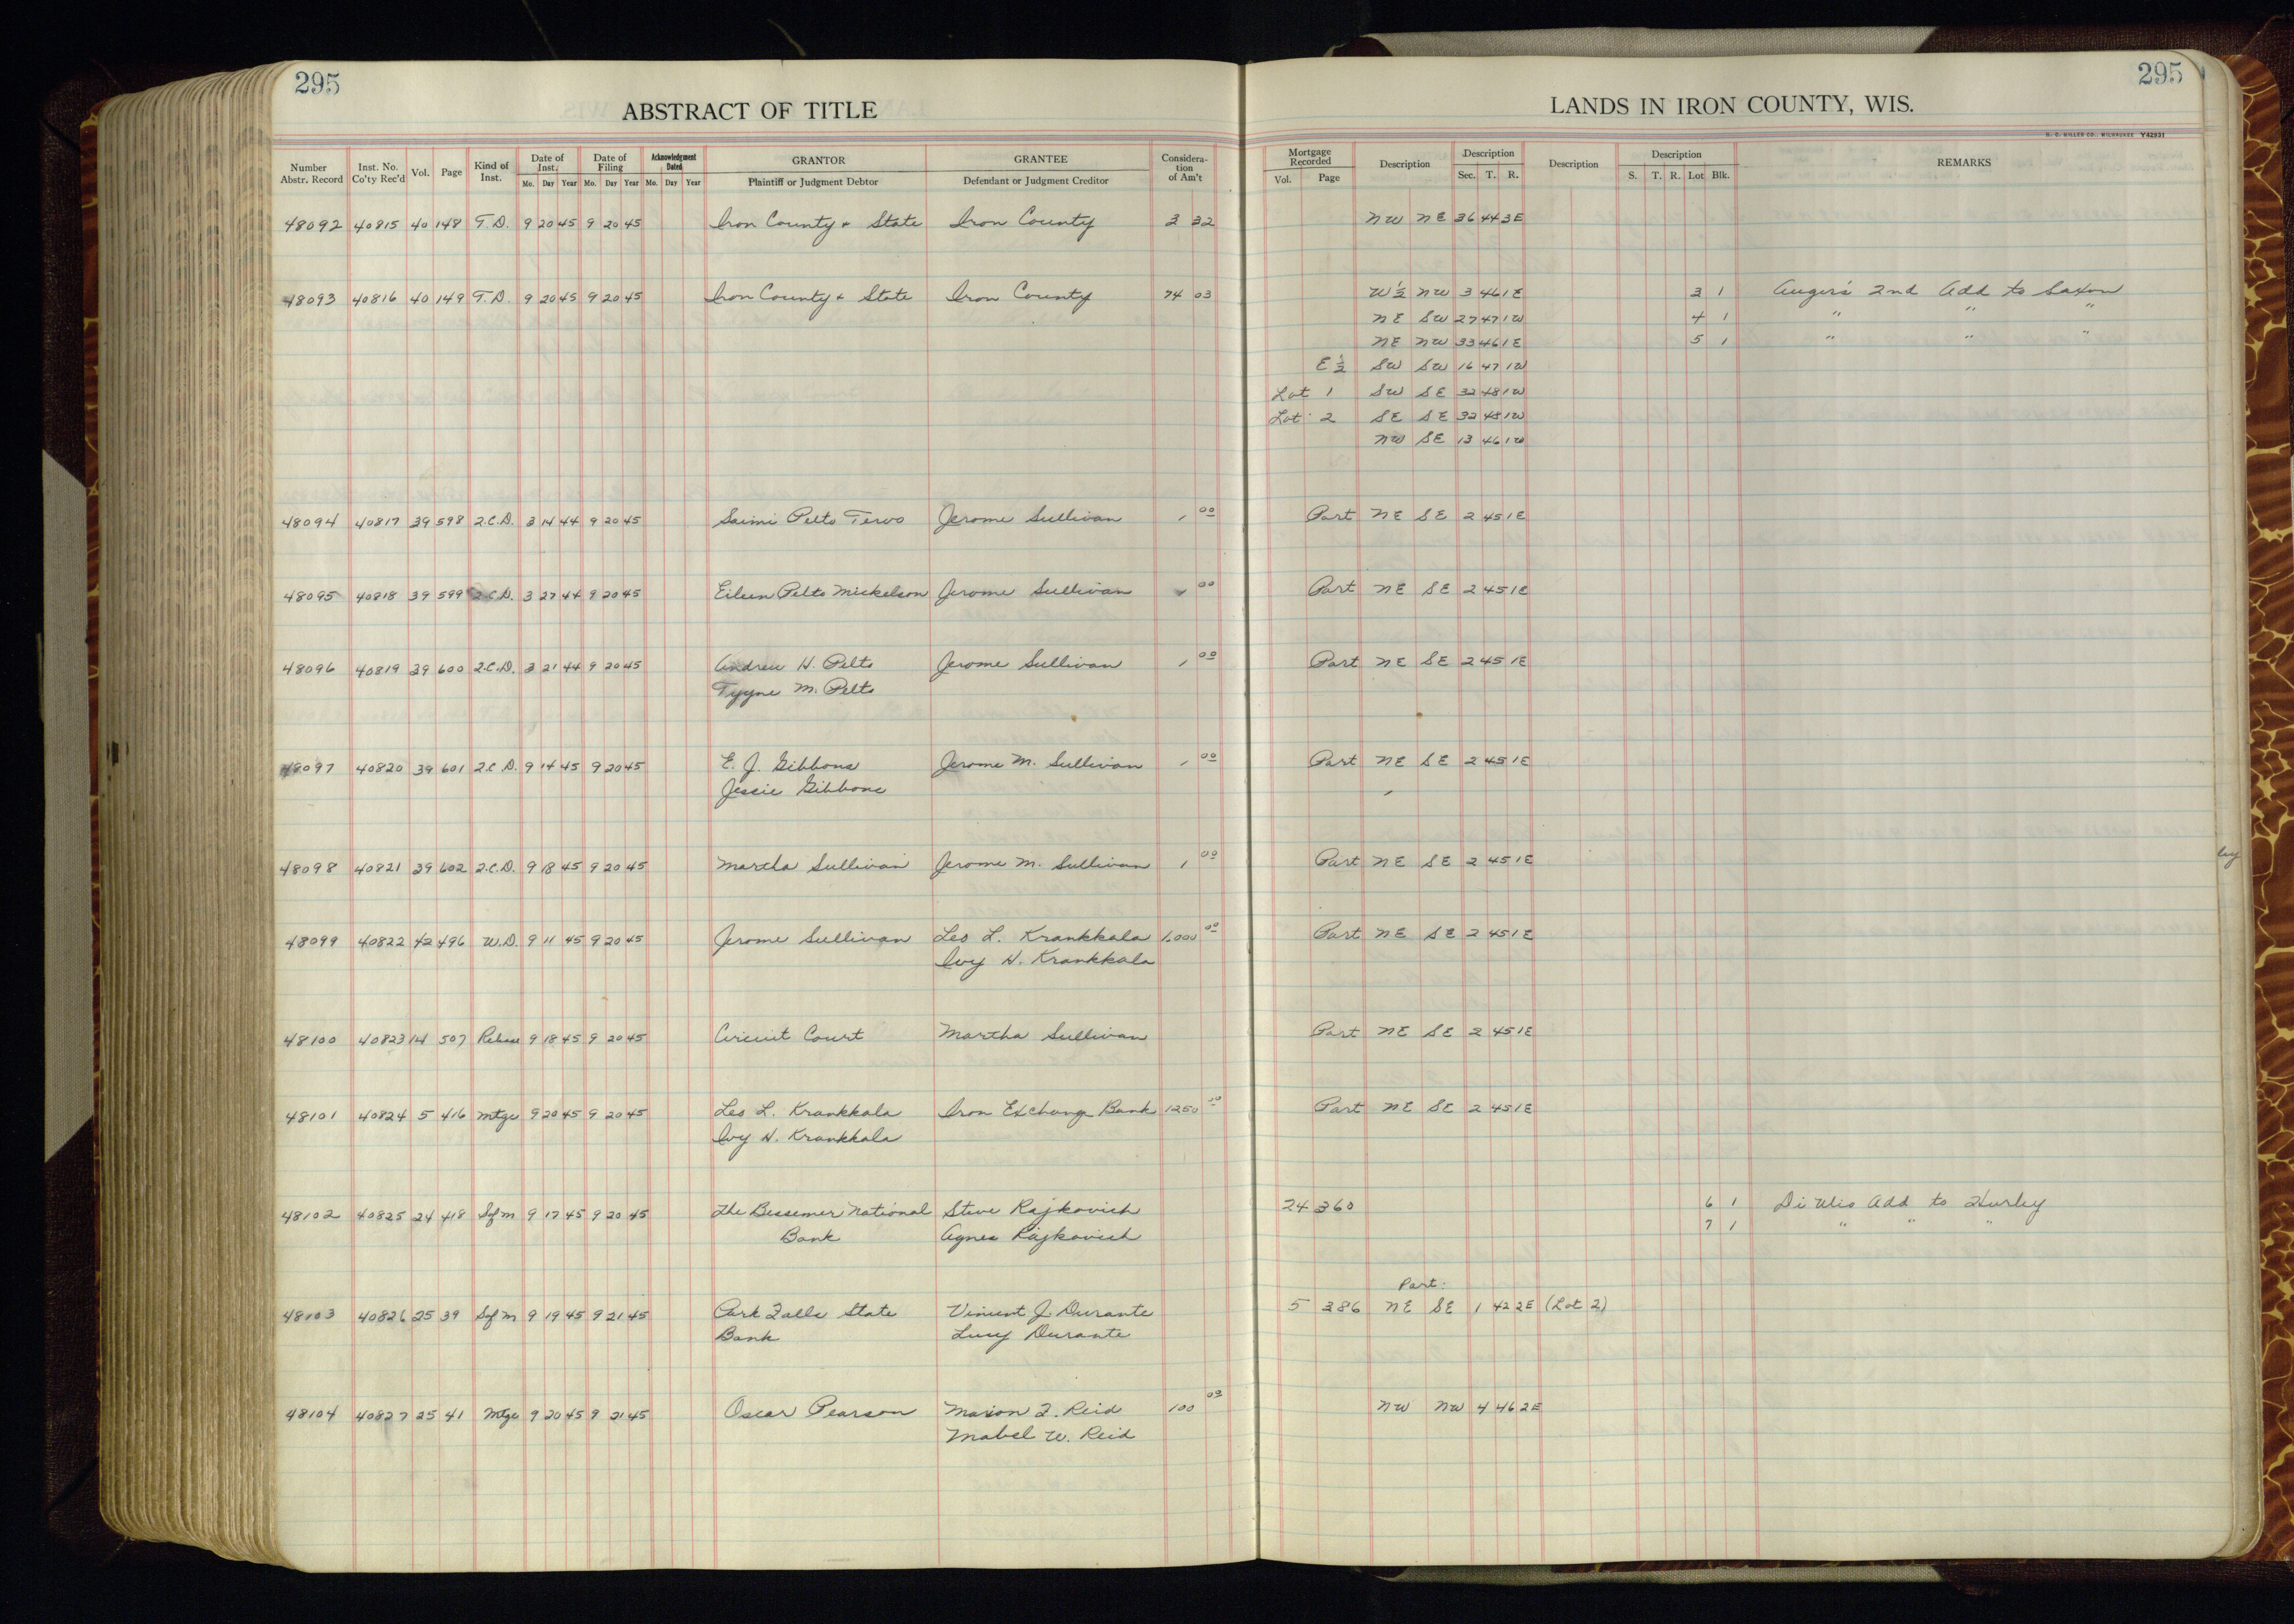 295
ABSTRACT OF TITLE
295
LANDS IN IRON COUNTY, WIS.
H. C. MILLER CO., MILWAUKEE Y42931
Number Abstr. Record Inst. No. Co'ty Rec'd Vol. Page Kind of Inst. Date of Inst. Mo. Day Year Date of Filing Mo. Day Year Acknowledgment Dated Mo. Day Year GRANTOR Plaintiff or Judgment Debtor GRANTEE Defendant or Judgment Creditor Considera-tion of Am't Mortgage Recorded Vol. Page Description Description Sec. T. R. Description Description S. T. R. Lot Blk. REMARKS
48092 40815 40 148 T.D. 9 20 45 9 20 45 Iron County & State Iron County 3 32 NW NE 36 44 3E
48093 40816 40 149 T.D. 9 20 45 9 20 45 Iron County & State Iron County 74 03 W½ NW 3 46 1E 3 1 Auger's 2nd Add to Saxon
NE SW 27 47 1W 4 1 " " "
NE NW 33 46 1E 5 1 " " "
E½ SW SW 16 47 1W
Lot 1 SW SE 32 48 1W
Lot 2 SE SE 32 48 1W
NW SE 13 46 1W
48094 40817 39 598 2.C.D. 3 14 44 9 20 45 Saimi Pelto Tervo Jerome Sullivan 1 00 Part NE SE 2 45 1E
48095 40818 39 599 2.C.D. 3 27 44 9 20 45 Eileen Pelto Mickelson Jerome Sullivan 1 00 Part NE SE 2 45 1E
48096 40819 39 600 2.C.D. 3 21 44 9 20 45 Andrew H. Pelto Jerome Sullivan 1 00 Part NE SE 2 45 1E
Tyyne M. Pelto
48097 40820 39 601 2.C.D. 9 14 45 9 20 45 E. J. Gibbons Jerome M. Sullivan 1 00 Part NE SE 2 45 1E
Jessie Gibbons
48098 40821 39 602 2.C.D. 9 18 45 9 20 45 Martha Sullivan Jerome M. Sullivan 1 00 Part NE SE 2 45 1E
48099 40822 42 496 W.D. 9 11 45 9 20 45 Jerome Sullivan Leo L. Krankkala 1,000 00 Part NE SE 2 45 1E
Ivy H. Krankkala
48100 40823 14 507 Release 9 18 45 9 20 45 Circuit Court Martha Sullivan Part NE SE 2 45 1E
48101 40824 5 416 Mtge 9 20 45 9 20 45 Leo L. Krankkala Iron Exchange Bank 1250 00 Part NE SE 2 45 1E
Ivy H. Krankkala
48102 40825 24 418 Sof M 9 17 45 9 20 45 The Bessemer National Steve Rajkovich 24 360 6 1 Di Ulio Add to Hurley
Bank Agnes Rajkovich 7 1 " " "
Part:
48103 40826 25 39 Sof M 9 19 45 9 21 45 Park Falls State Vincent J. Durante 5 386 NE SE 1 42 2E (Lot 2)
Bank Lucy Durante
48104 40827 25 41 Mtge 9 20 45 9 21 45 Oscar Pearson Marion F. Reid 100 00 NW NW 4 46 2E
Mabel W. Reid